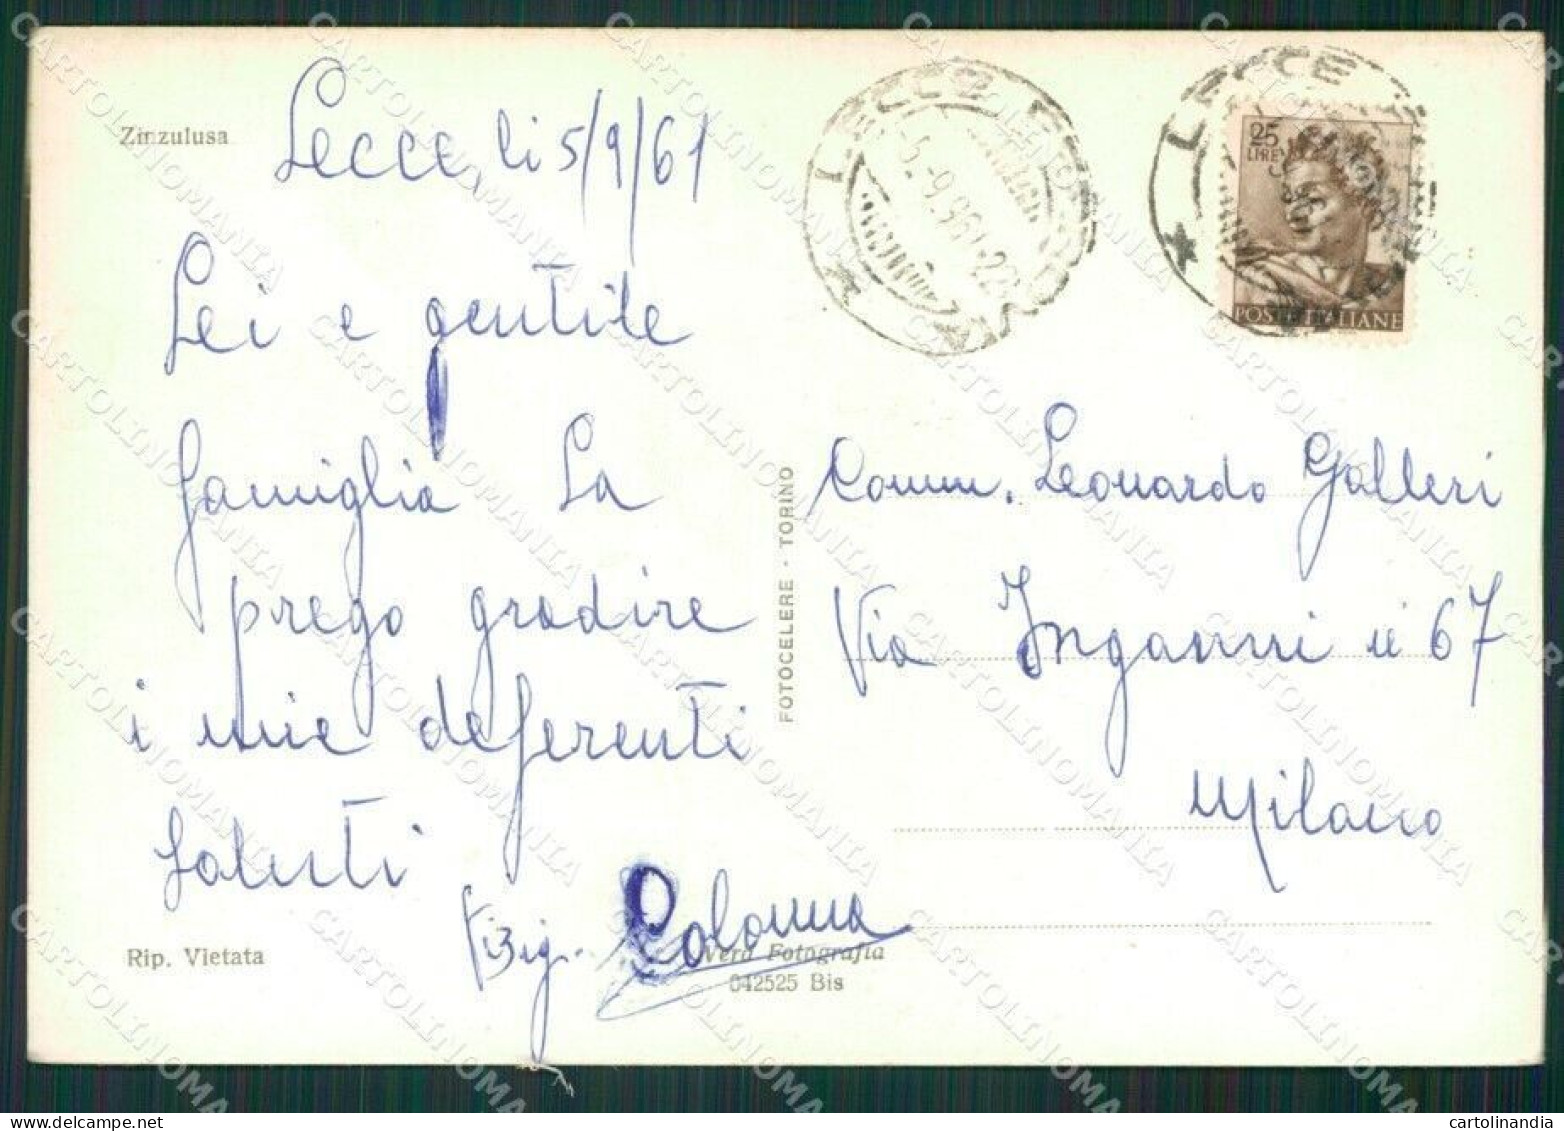 Zinzulusa
Lecce, li 5/9/61
Lei e gentile
famiglia La
prego gradire
i mie deferenti
saluti
Colonna
Rip. Vietata
Vera Fotografia
042525 Bis
FOTOCELERE - TORINO
LECCE
5.-9.961-22
LECCE
25
LIRE
POSTE ITALIANE
Comm. Leonardo Galleri
Via Inganni n° 67
Milano
CARTOLINOMANIA
cartolinandia